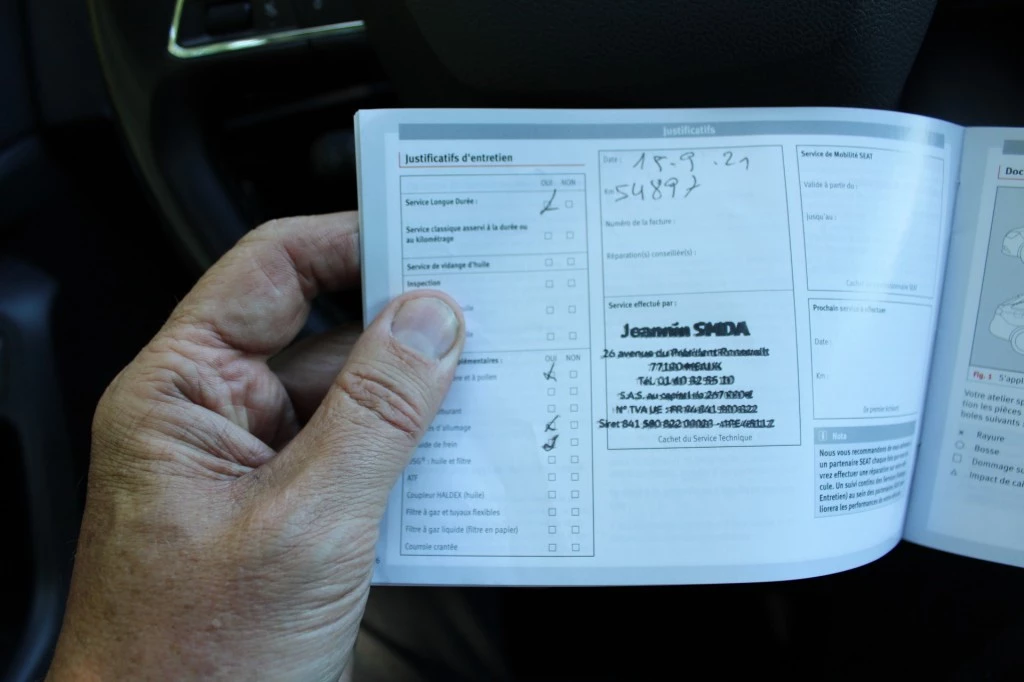 Justificatifs
Justificatifs d'entretien
OUI NON
Service Longue Durée :
Service classique asservi à la durée ou
au kilométrage
Service de vidange d'huile
Inspection
OUI NON
et à pollen
d'allumage
de frein
huile et filtre
ATF
Coupleur HALDEX (huile)
Filtre à gaz et tuyaux flexibles
Filtre à gaz liquide (filtre en papier)
Courroie crantée
Date : 15.9.21
Km 54897
Numéro de la facture :
Réparation(s) conseillée(s) :
Service effectué par :
Jeannin SMDA
26 avenue du Président
77100 MEAUX
S.A.S. au capital de
N° TVA UE : FR
Siret 841
Cachet du Service Technique
Service de Mobilité SEAT
Valide à partir du :
Jusqu'au :
Cachet
Prochain service à effectuer
Date :
Km :
Nota
Nous vous recommandons de
un partenaire SEAT chaque fois que
vrez effectuer une réparation sur votre
cule. Un suivi continu des
Entretien) au sein des partenaires
liorera les performances de votre
Doc
Fig. 1 S'appl
Votre atelier sp
tion les pièces
boles suivants
Rayure
Bosse
Dommage su
Impact de cai